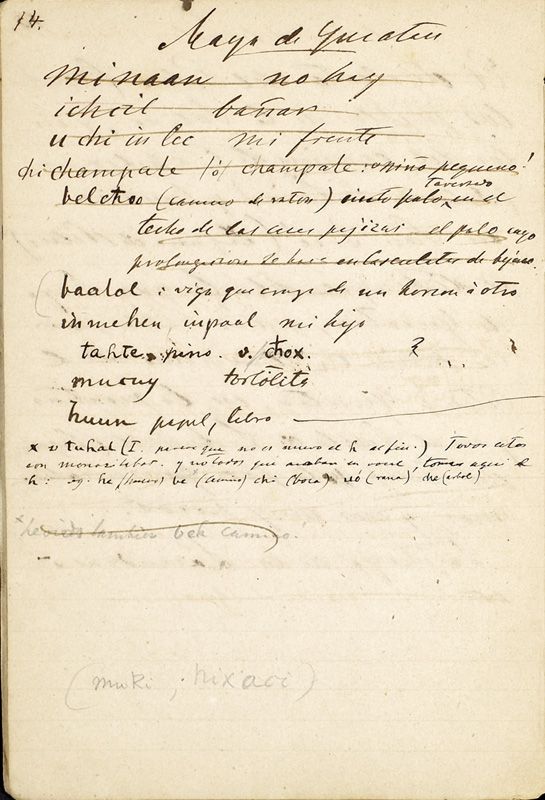 14.
Maya de Yucatan
minaan no hay
ichcil bañar
u chi in lec mi frente
chichampale /ó/ champale: niño pequeño!
belchoo (camino de raton) cinto palo traversado en el
techo de las casas pajizas el palo cuyo
de bejuco
baalol: viga que cruza de un horcon á otro
inmehen, inpaal mi hijo
tahte. pino. v. chox. ?
mucuy tortólita
huun papel, libro
x v tuhal (I. parece que no es nuevo el h al fin.) Todos estos
son monosilabos. y no todos que acaban en vocal, toman aqui h
h: be (camino) chi (boca) (rana) che (arbol)
tambien beh camino.
(muki, hixaci)